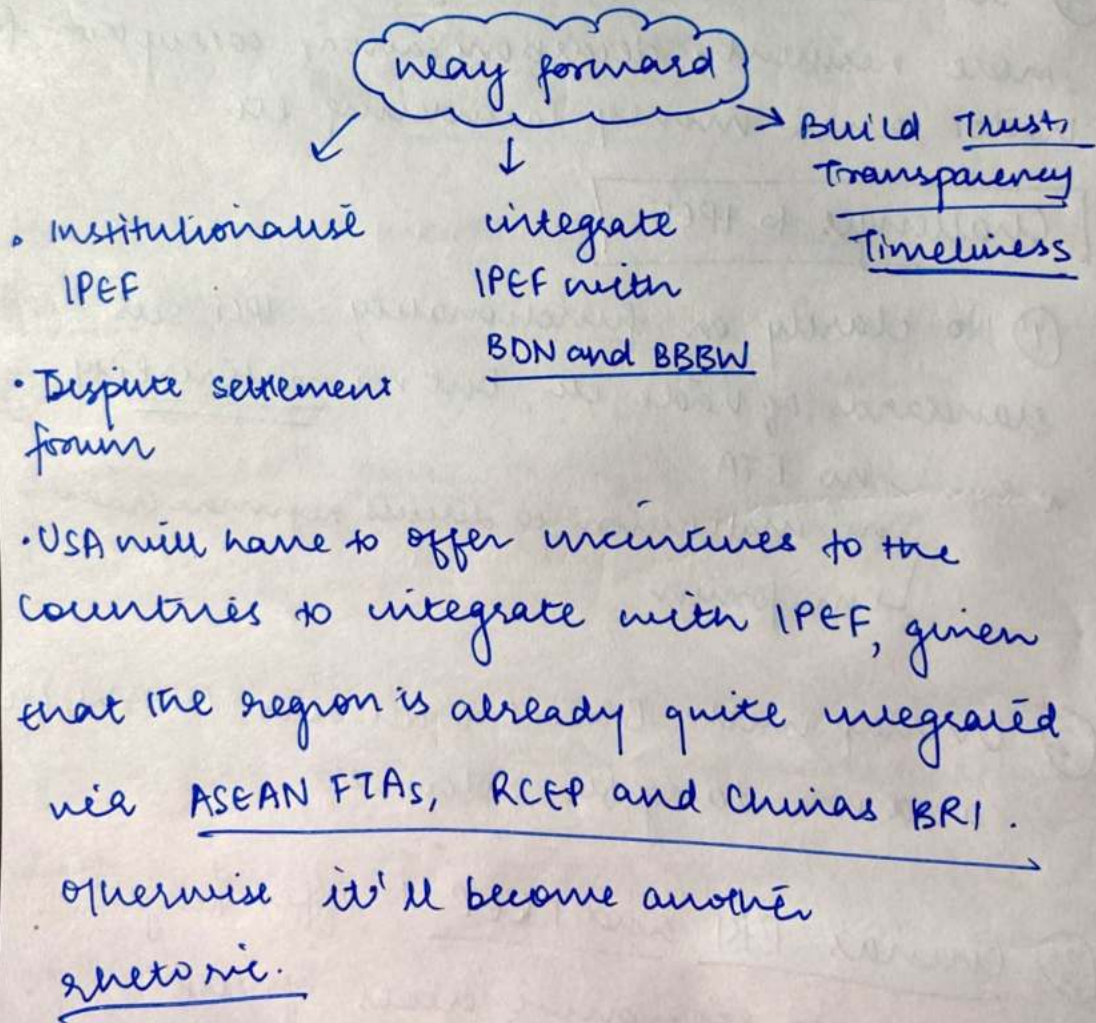 way forward
• Institutionalise
IPEF
• Dispute settlement
forum
integrate
IPEF with
BDN and BBBW
Build Trust,
Transparency
Timeliness
• USA will have to offer incentives to the
countries to integrate with IPEF, given
that the region is already quite integrated
via ASEAN FTAs, RCEP and Chinas BRI.
otherwise it'll become another
rhetoric.